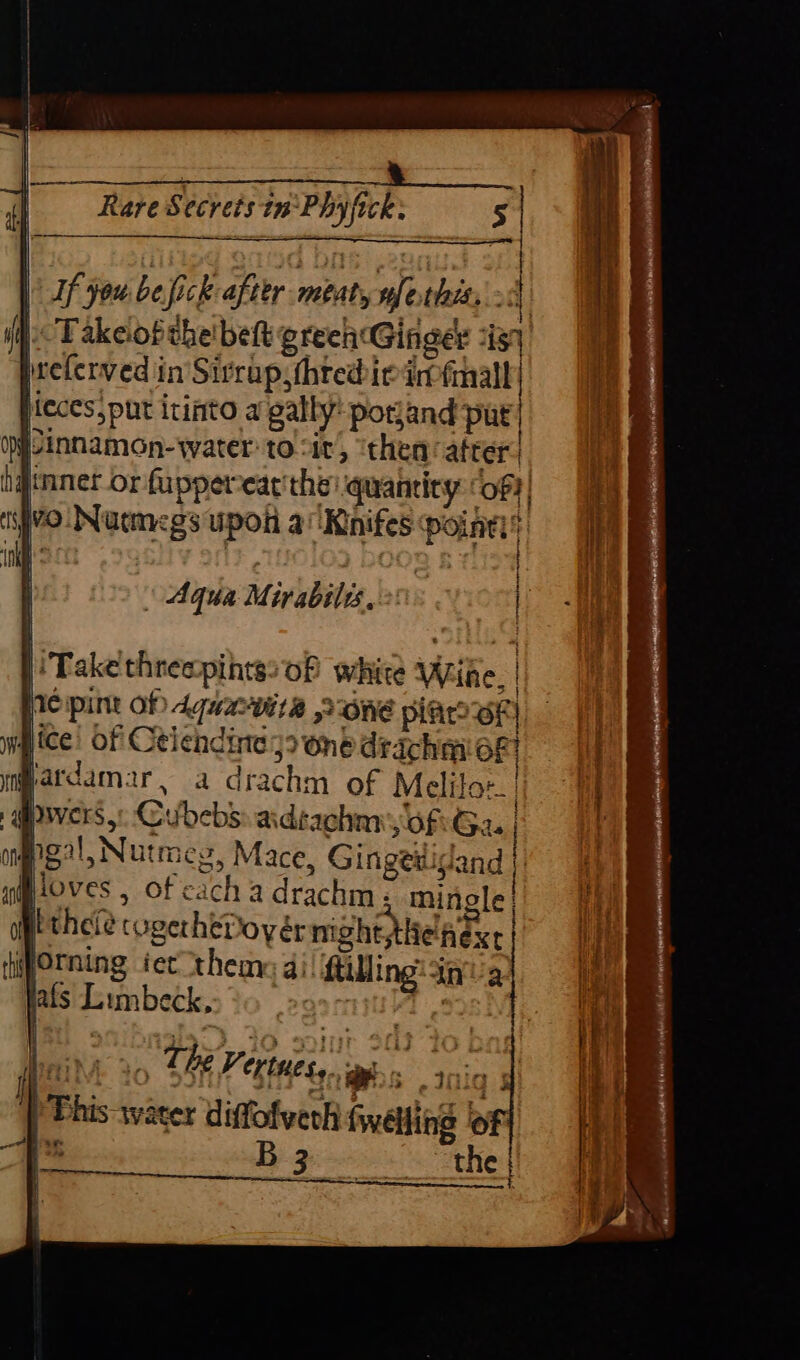 Rare Secrets in Phyſick. 5
If you be ſick after meat, uſe this.
Take of the beſt green Ginger is
preſerved in Sirrup, ſhred it in ſmall
pieces, put it into a gally pot, and put
Cinnamon-water to it, then after
dinner or ſupper eat the quantity of
two Nutmegs upon a Knifes point.
Aqua Mirabilis.
Take three pints of white Wine,
pint of Aquavitæ, one pint of
juice of Celendine, one drachm of
Cardamar, a drachm of Melilot
flowers, Cubebs a drachm, of Ga-
lingal, Nutmeg, Mace, Ginger, and
Cloves, of each a drachm; mingle
theſe together over night, the next
morning ſet them a ſtilling in a
glaſs Limbeck.
The Vertues.
This water diſſolveth ſwelling of
B 3 the